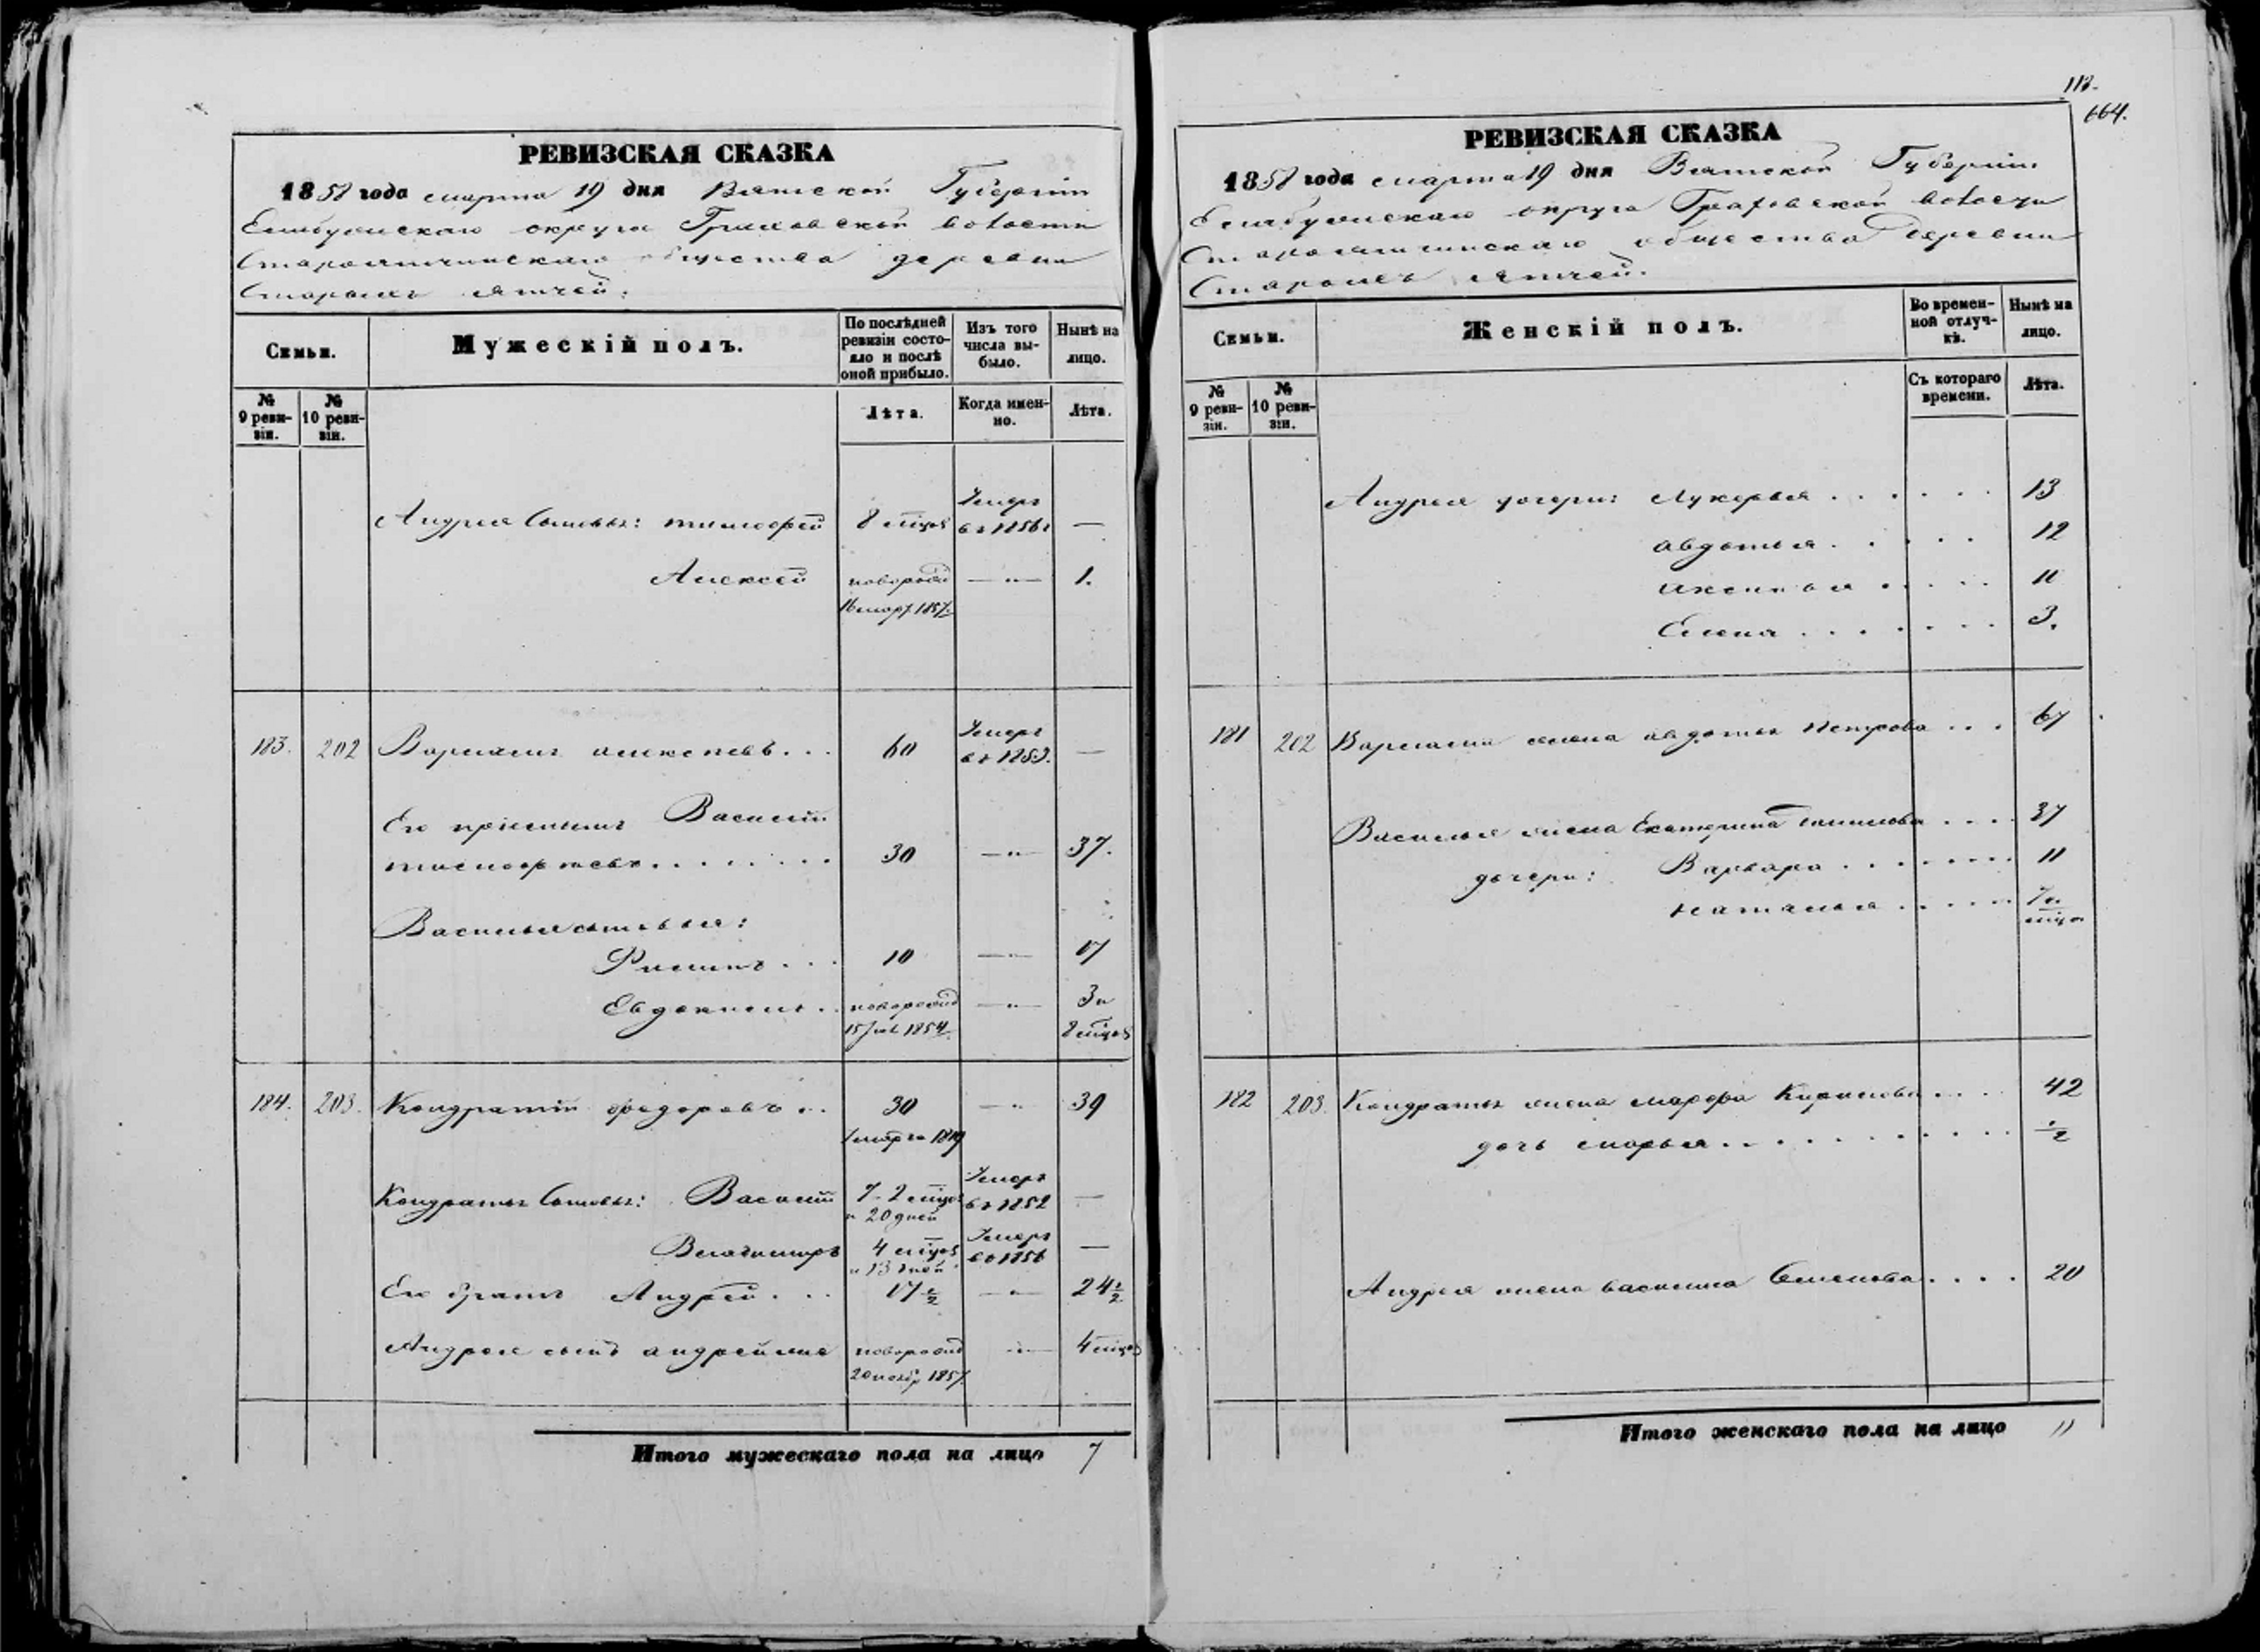 РЕВИЗСКАЯ СКАЗКА
1858 года марта 19 дня Вятской Губернии
Елабужскаго округа Граховской волости
Староятчинскаго общества деревни
Старыхъ Ятчей.
Семьи.
Мужескій полъ.
По послѣдней ревизіи состояло и послѣ оной прибыло.
Изъ того числа выбыло.
Нынѣ на лицо.
№ 9 ревизіи.
№ 10 ревизіи.
Лѣта.
Когда именно.
Лѣта.
Андрея Сыновья: тимофей 8 мѣцов Умеръ въ 1856 г —
Алексей новорожд 16 март. 1857. — " — 1.
183. 202 Варламъ алексѣевъ... 60 Умеръ въ 1853. —
Его пріемышъ Василій
тимофѣевъ........ 30 — " — 37.
Василья сыновья:
Филипъ... 10 — " — 17
Евдокимъ.. новорожд — " — 3 и
1854 8 мѣцов
184. 203. Кондратій федоровъ... 30 — " 39
Кондратья Сыновья: Василій 7. 2 мѣцов и 20 дней Умеръ въ 1852 —
Владимиръ 4 мѣцов и 13 дней Умеръ въ 1856 —
Его братъ Андрей... 17 ½ — " — 24 ½
Андрея сынъ новорожд — " — 4 мѣцов
20 ноябр 1857.
Итого мужескаго пола на лицо 7
113.
664.
РЕВИЗСКАЯ СКАЗКА
1858 года марта 19 дня Вятской Губерніи
Елабужскаго округа Граховской волости
Староятчинскаго общества деревни
Старыхъ Ятчей.
Семьи.
Женскій полъ.
Во временной отлучкѣ.
Нынѣ на лицо.
№ 9 ревизіи.
№ 10 ревизіи.
Съ котораго времени.
Лѣта.
Андрея дочери: Лукерья...... 13
авдотья..... 12
аксинья..... 11
Елена....... 3.
181 202 Варлама жена авдотья Петрова... 67
Василья жена Екатерина.... 37
дочери: Варвара....... 11
наталья..... 7 и мѣцов
182 203. Кондратья жена марфа Кирилова.... 42
дочь марья.......... ½
Андрея жена василиса Семенова.... 20
Итого женскаго пола на лицо 11